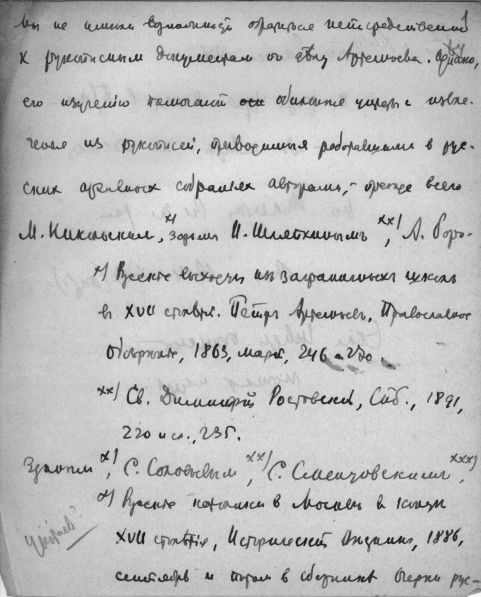 Мы не имели возможность обратиться непосредственно
к рукописным документам по делу Артемьева. Однако,
его изучению помогают обильные цитаты и извле-
чения из рукописей, приводимыя работавшими в рус-
ских архивных собраниях авторами, - прежде всего
М. Никольским, х) затем И. Шляпкинымъ хх), А. Боро-
х) Русские выходцы из заграничных школ
в XVII столетия. Петръ Артемьев, Православное
Обозрение, 1863, март, 246-270
хх) Св. Димитрий Ростовский, Спб., 1891,
220 и сл., 235.
Здиным х), С. Соловьевым хх), С. Сменцовским ххх)
х) Русские католики в Москве в конце
XVII столетия, Исторический Вестник, 1886,
сентябрь и потом в сборнике Очерки рус-